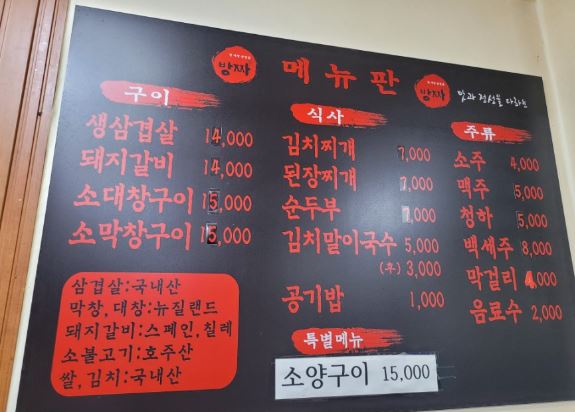 방짜
메뉴판
방짜
맛과 정성을 다하는
구이
생삼겹살 14,000
돼지갈비 14,000
소대창구이 15,000
소막창구이 15,000
삼겹살:국내산
막창, 대창:뉴질랜드
돼지갈비:스페인, 칠레
소불고기:호주산
쌀, 김치:국내산
식사
김치찌개 7,000
된장찌개 7,000
순두부 7,000
김치말이국수 5,000
(우) 3,000
공기밥 1,000
특별메뉴
소양구이 15,000
주류
소주 4,000
맥주 5,000
청하 5,000
백세주 8,000
막걸리 4,000
음료수 2,000